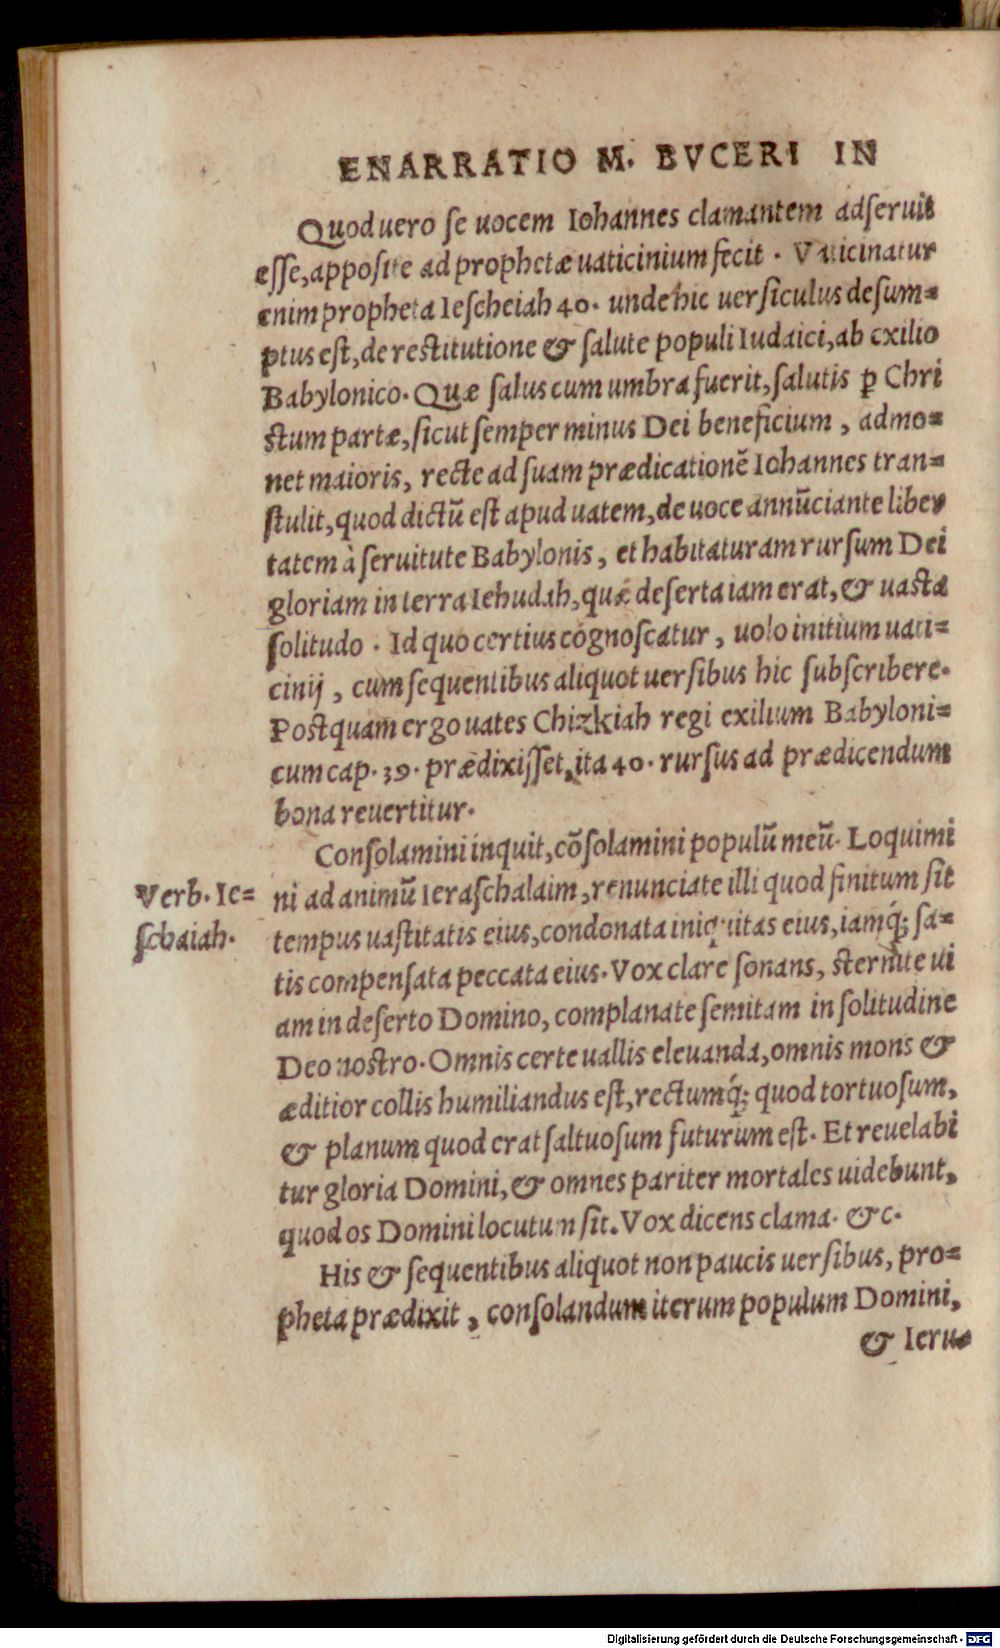 ENARRATIO M. BVCERI IN
Quod uero ſe uocem Iohannes clamantem adſeruit
eſſe, appoſite ad prophetæ uaticinium fecit. Vaticinatur
enim propheta Ieſcheiah 40. unde hic uerſiculus deſum=
ptus eſt, de reſtitutione & ſalute populi Iudaici, ab exilio
Babylonico. Quæ ſalus cum umbra fuerit, ſalutis ꝑ Chri
ſtum partæ, ſicut ſemper minus Dei beneficium, admo=
net maioris, recte ad ſuam prædicationẽ Iohannes tran=
ſtulit, quod dictũ eſt apud uatem, de uoce annũciante liber
tatem à ſeruitute Babylonis, et habitaturam rurſum Dei
gloriam in terra Iehudah, quæ deſerta iam erat, & uaſta
ſolitudo. Id quo certius cognoſcatur, uolo initium uati=
cinij, cum ſequentibus aliquot uerſibus hic ſubſcribere.
Poſtquam ergo uates Chizkiah regi exilium Babyloni=
cum cap. 39. prædixiſſet, ita 40. rurſus ad prædicendum
bona reuertitur.
Conſolamini inquit, cõſolamini populũ meũ. Loquimi
Verb. Ie=
ſchaiah.
ni ad animũ Ieraſchalaim, renunciate illi quod finitum ſit
tempus uaſtitatis eius, condonata iniquitas eius, iamq́; ſa=
tis compenſata peccata eius. Vox clare ſonans, ſternite ui
am in deſerto Domino, complanate ſemitam in ſolitudine
Deo noſtro. Omnis certe uallis eleuanda, omnis mons &
æditior collis humiliandus eſt, rectumq́; quod tortuoſum,
& planum quod erat ſaltuoſum futurum eſt. Et reuelabi
tur gloria Domini, & omnes pariter mortales uidebunt,
quod os Domini locutum ſit. Vox dicens clama. &c.
His & ſequentibus aliquot non paucis uerſibus, pro=
pheta prædixit, conſolandum iterum populum Domini,
& Ieru=
Digitalisierung gefördert durch die Deutsche Forschungsgemeinschaft - DFG